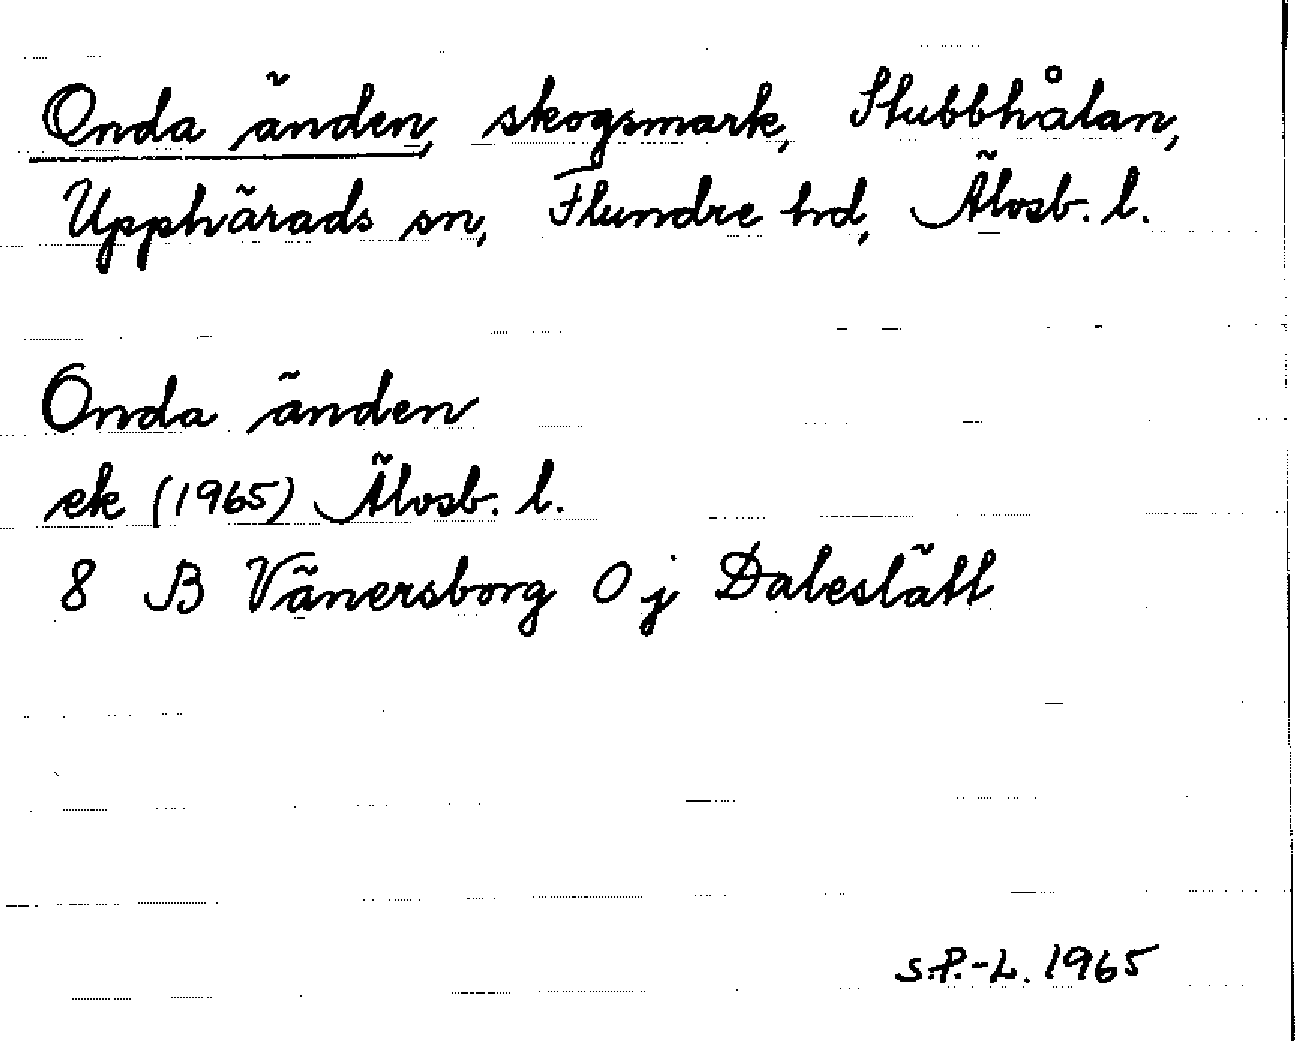 Onda änden, skogsmark, Stubbhålan,
Upphärads sn, Flundre hd, Älvsb. l.
Onda änden
ek (1965) Älvsb. l.
8 B Vänersborg 0 j Daleslätt
S.P.-L. 1965